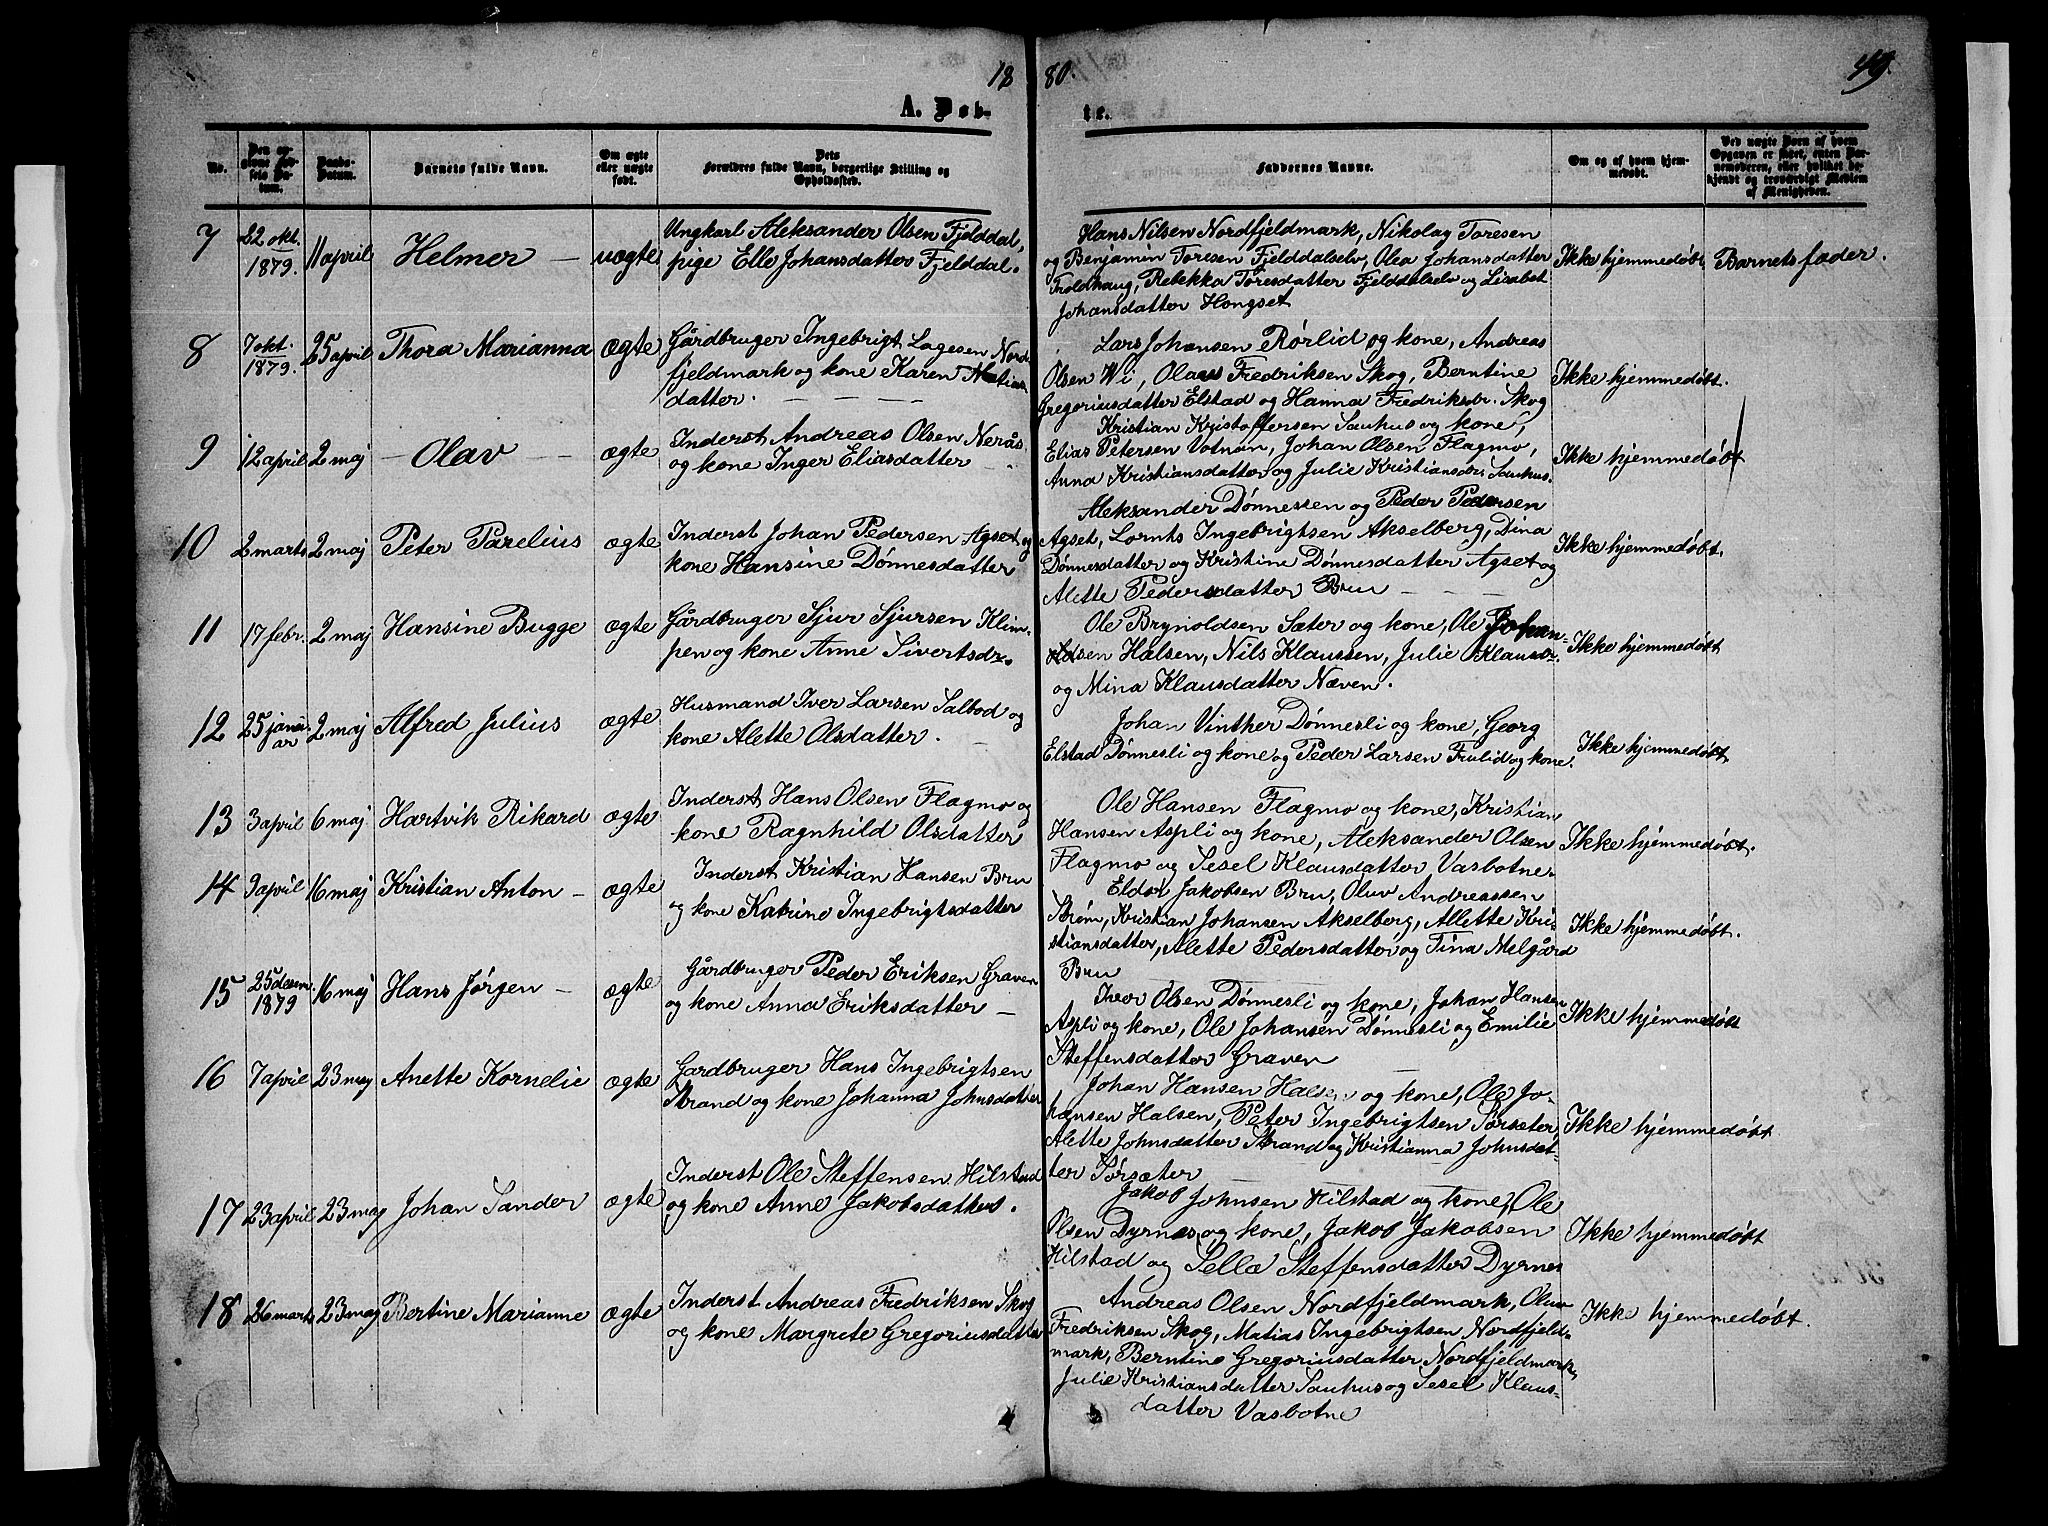 18 80. 49.
A. Døbte.
No.
Den opgivne Førsels Datum.
Daabs-Datum.
Barnets fulde Navn.
Om ægte eller uægte født.
Dets Forældres fulde Navn, borgerlige Stilling og Opholdssted.
Faddernes Navne.
Om og af hvem hjemmedøbt.
Ved uægte Børn af hvem Opgaven er skeet, enten Barnemoderen, eller hvilket bekjendt og troværdigt Medlem af Menigheden.
7 22 okt. 1879. 11 april Helmer — uægte
Ungkarl Aleksander Olsen Fjelddal,
pige Elle Johansdatter Fjelddal.
Hans Nilsen Nordfjeldmark, Nikolay Toresen
og Benjamin Toresen Fjelddalselv, Olea Johansdatter
Troldhaug, Rebekka Toresdatter Fjelddalselv og Lisabet
Johansdatter Hongset
Ikke hjemmedøbt Barnets fader.
8 7 okt. 1879. 25 april Thora Marianna ægte
Gårdbruger Ingebrigt Lagesen Nord-
fjeldmark og kone Karen Matias
datter. — — — —
Lars Johansen Rørlid og kone, Andreas
Olsen Wi, Olaus Fredriksen Skog, Berntine
Gregoriusdatter Elstad og Hanna Fredriksdr. Skog
Ikke hjemmedøbt.
9 12 april 2 maj — Olav — ægte
Inderst Andreas Olsen Nerås
og kone Inger Eliasdatter —
Kristian Kristoffersen Sauhus og kone,
Elias Petersen Votnan, Johan Olsen Flagmo,
Anna Kristiansdatter og Julie Kristiansdr. Sauhus.
Ikke hjemmedøbt
10 2 marts 2 maj Peter Parelius ægte
Inderst Johan Pedersen Agset og
kone Hansine Dønnesdatter
Aleksander Dønnessen og Peder Pedersen
Agset, Lornts Ingebrigtsen Akselberg, Dina
Dønnesdatter og Kristine Dønnesdatter Agset og
Alette Pedersdatter Bru — — —
Ikke hjemmedøbt.
11 17 febr. 2 maj Hansine Bugge ægte
Gårdbruger Sjur Sjursen Klim-
pen og kone Anne Sivertsdr.
Ole Brynoldsen Sæter og kone, Ole Johan-
sen Halsen, Nils Klaussen, Julie Klausdr.
og Mina Klausdatter Næven.
Ikke hjemmedøbt
12 25 januar 2 maj Alfred Julius ægte
Husmand Iver Larsen Salbod og
kone Alette Olsdatter. —
Johan Vinther Dønnesli og kone, Georg
Elstad Dønnesli og kone og Peder Larsen Frulid og kone.
Ikke hjemmedøbt
13 3 april 6 maj Hartvik Rikard ægte
Inderst Hans Olsen Flagmo og
kone Ragnhild Olsdatter
Ole Hansen Flagmo og kone, Kristian
Hansen Aspli og kone, Aleksander Olsen
Flagmo og Sesel Klausdatter Vasbotne.
Ikke hjemmedøbt.
14 9 april 16 maj Kristian Anton — ægte
Inderst Kristian Hansen Bru
og kone Katrine Ingebrigtsdatter
Eldor Jakobsen Bru, Oluv Andreassen
Strøm, Kristian Johansen Akselberg, Alette Kri-
stiansdatter, Alette Pedersdatter og Tina Melgård
Bru
Ikke hjemmedøbt.
15 25 decem. 1879 16 maj Hans Jørgen — ægte
Gårdbruger Peder Eriksen Graven
og kone Anna Eriksdatter —
Iver Olsen Dønnesli og kone, Johan Hansen
Aspli og kone, Ole Johansen Dønnesli og Emilie
Steffensdatter Graven —
Ikke hjemmedøbt
16 7 april 23 maj Anette Kornelie ægte
Gardbruger Hans Ingebrigtsen
Strand og kone Johanna Johnsdatter
Johan Hansen Halsen og kone, Ole Jo-
hansen Halsen, Peter Ingebrigtsen Sørsæter,
Alette Johnsdatter Strand og Kristianna Johnsdat-
ter Sørsæter
Ikke hjemmedøbt
17 23 april 23 maj Johan Sander ægte
Inderst Ole Steffensen Hilstad
og kone Anne Jakobsdatter.
Jakob Johnsen Hilstad og kone, Ole
Olsen Dyrnes og kone, Jakob Jakobsen
Hilstad og Sella Steffensdatter Dyrnes
Ikke hjemmedøbt
18 26 marts 23 maj Bertine Marianne ægte
Inderst Andreas Fredriksen Skog
og kone Margrete Gregoriusdatter
Andreas Olsen Nordfjeldmark, Oluv
Fredriksen Skog, Matias Ingebrigtsen Nordfjeld-
mark, Berntine Gregoriusdatter Nordfjeldmark,
Julie Kristiansdatter Sauhus og Sesel Klaus-
datter Vasbotne
Ikke hjemmedøbt.